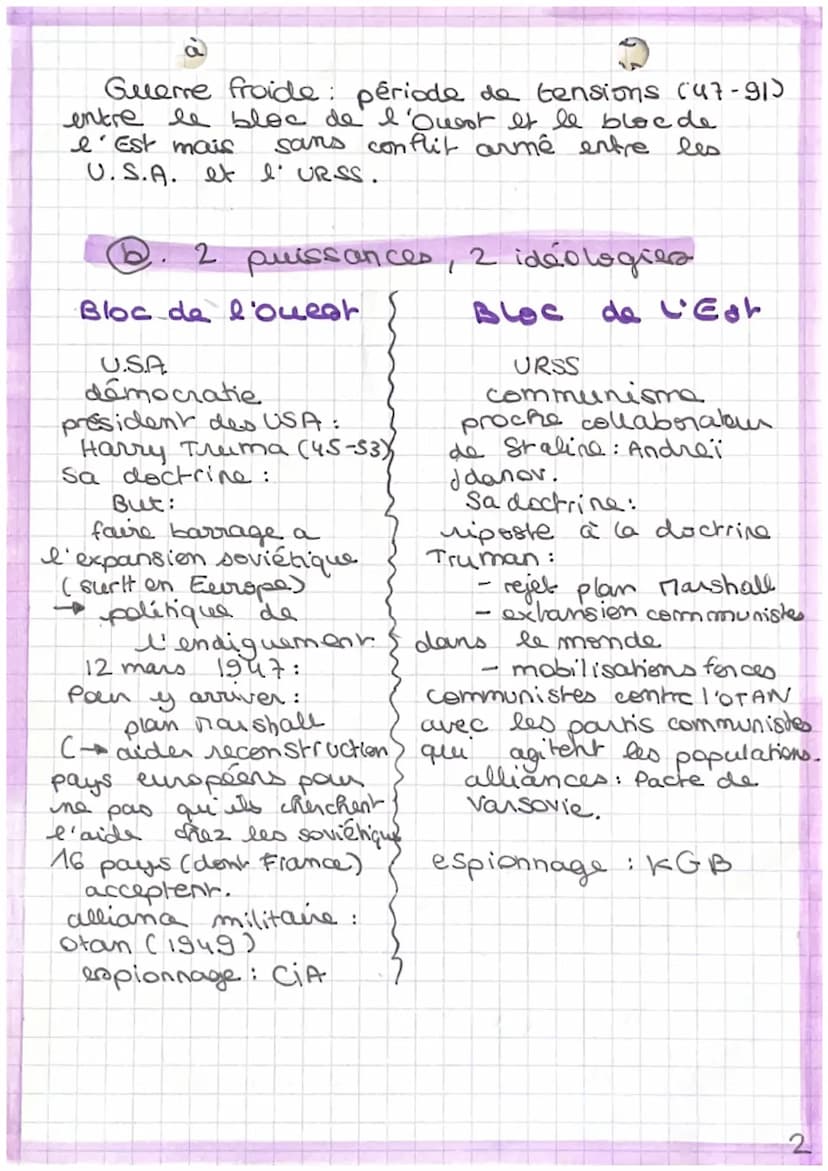 à
Guerre froide : période de tensions (47-91)
entre le bloc de l'Ouest et le bloc de
l'Est mais sans conflit armé entre les
U.S.A. et l'URSS.
b. 2 puissances, 2 idéologies
Bloc de l'Ouest
U.S.A
démocratie
président des USA :
Harry Truma (45-53)
sa doctrine :
But :
faire barrage a
l'expansion soviétique
(surtt en Europe)
→ politique de
l'endiguement
12 mars 1947 :
Pour y arriver :
plan Marshall
(→ aider reconstruction
pays européens pour
ne pas qu'ils cherchent
l'aide chez les soviétique
16 pays (dont France)
acceptent.
alliance militaire :
Otan (1949)
espionnage : CiA
Bloc de L'Est
URSS
communisme
proche collaborateur
de Staline : Andreï
Jdanov.
Sa doctrine :
riposte à la doctrine
Truman :
- rejet plan Marshall
- expansion communistes
dans le monde
- mobilisations forces
communistes contre l'OTAN
avec les partis communistes
qui agitent les populations.
alliances : Pacte de
Varsovie.
espionnage : KGB
2